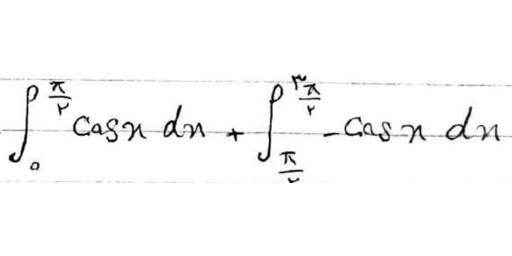 ∫₀^(π/۲) cosx dx + ∫_(π/۲)^(۳π/۲) -cosx dx